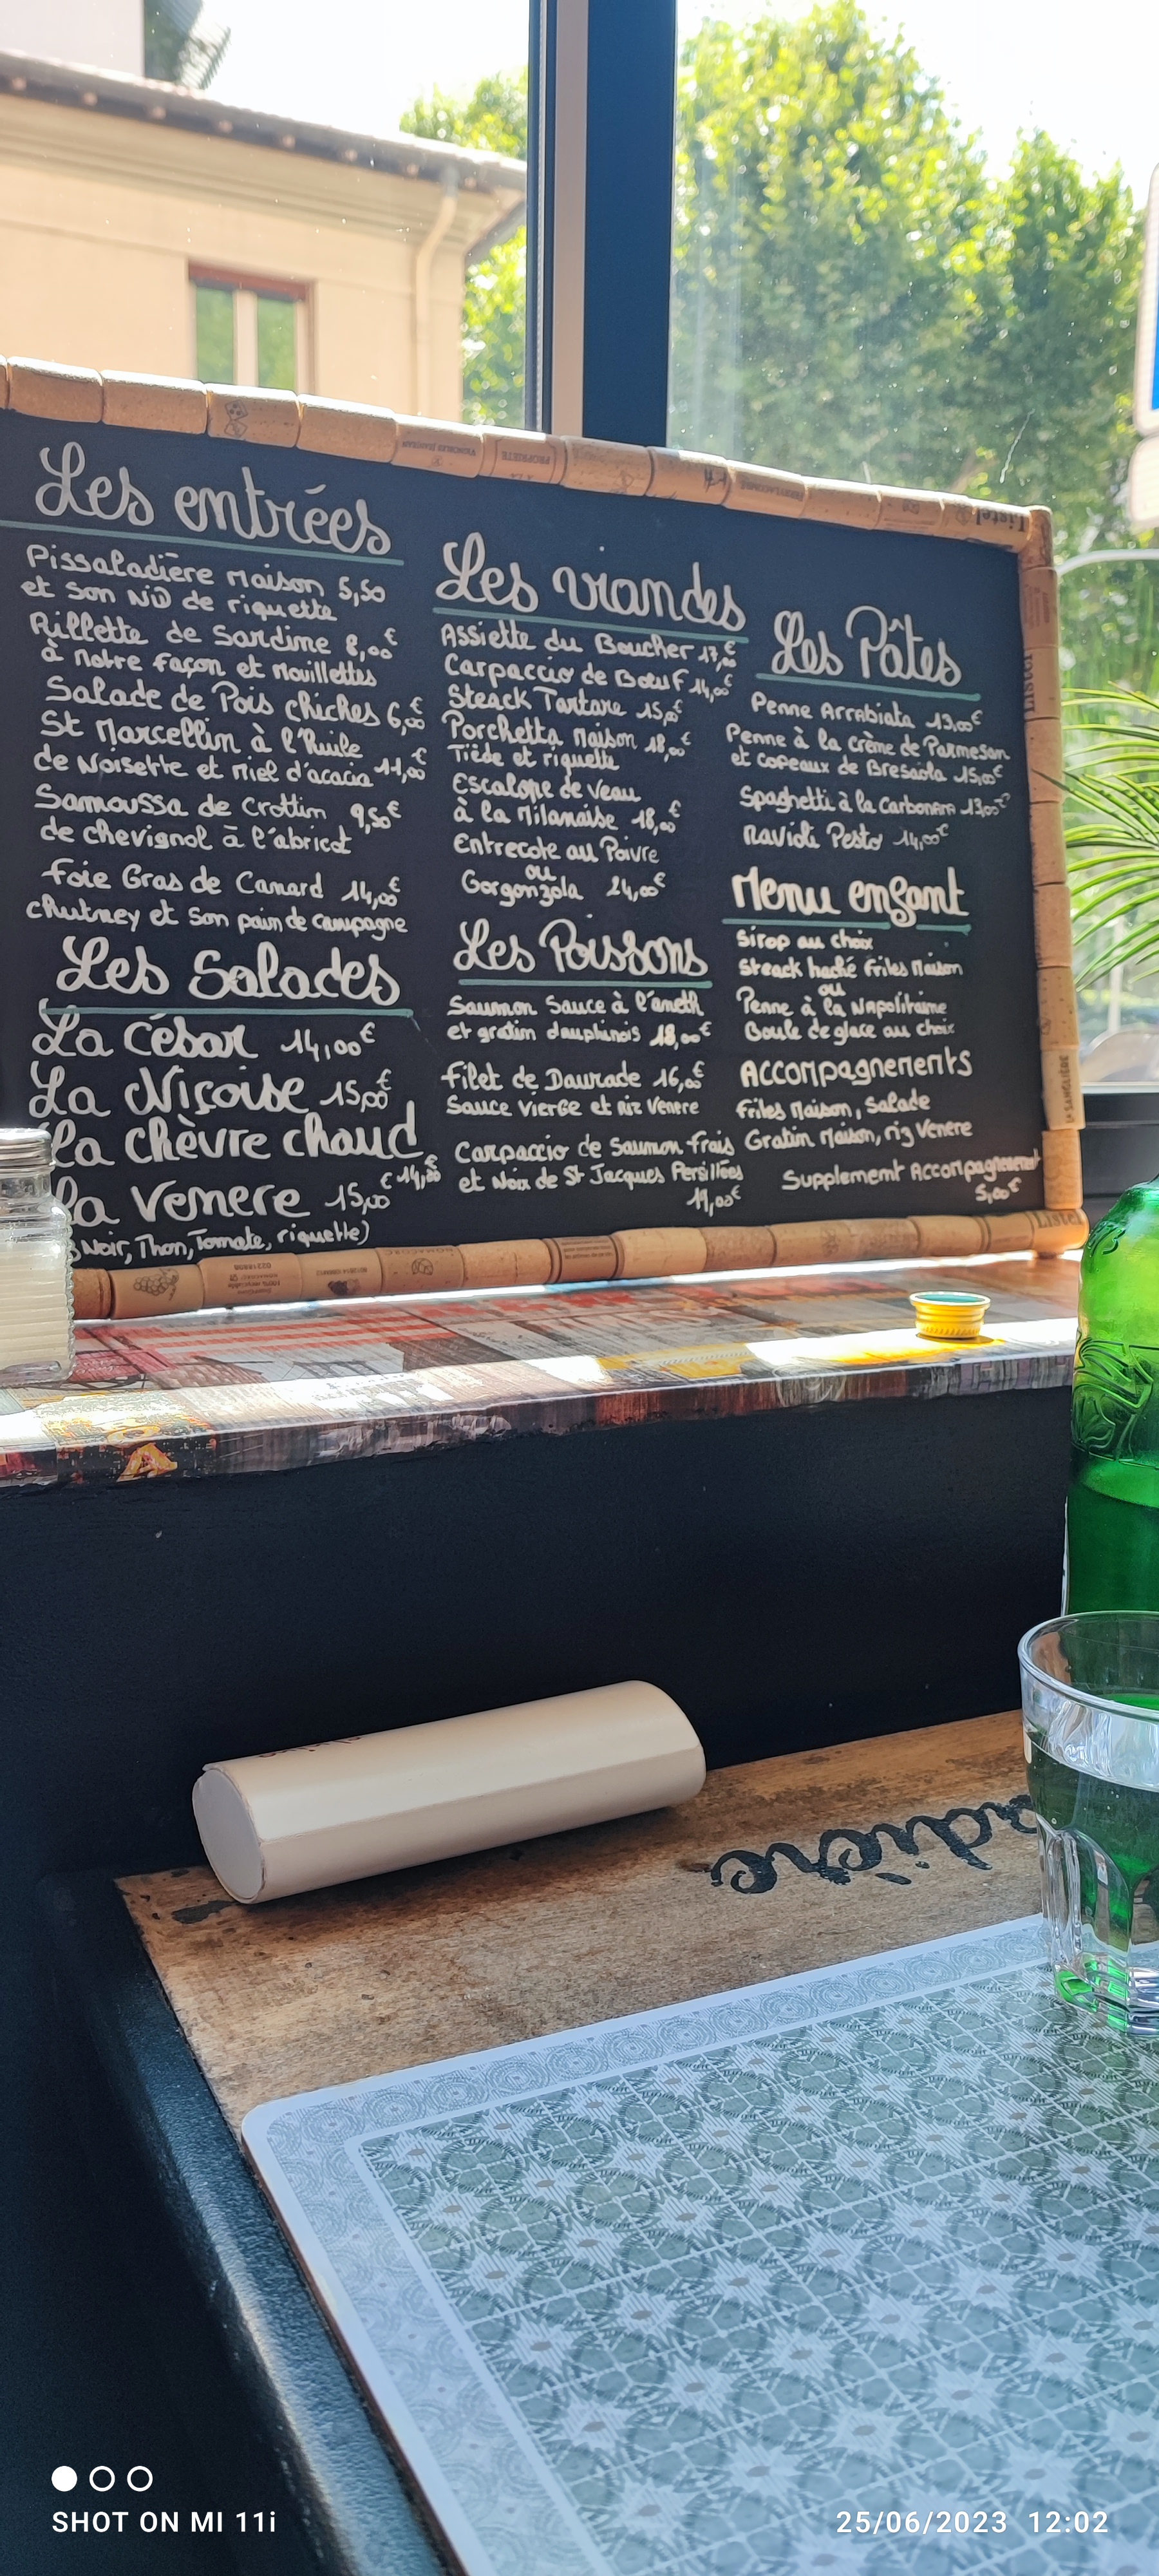 Les entrées
Pissaladière Maison 5,50
et son NiD de riquette
Rillette de Sardine 8,00€
à notre façon et Mouillettes
Salade de Pois chiches 6,00€
St Marcellin à l'Huile
de Noisette et Miel d'acacia 11,00€
Samoussa de Crottin 9,50€
de chevignol à l'abricot
Foie Gras de Canard 14,00€
chutney et son pain de campagne
Les Salades
La César 14,00€
La Niçoise 15,00€
la chèvre chaud
€ 14,00€
la Venere 15,00
Noir, Thon, Tomate, riquette)
Les viandes
Assiette du Boucher 17,00€
Carpaccio de Bœuf 14,00€
Steack Tartare 15,00€
Porchetta Maison 18,00€
Tiède et riquette
Escalope de veau
à la Milanaise 18,00€
Entrecote au Poivre
ou
Gorgonzola 24,00€
Les Poissons
Saumon Sauce à l'aneth
et gratin dauphinois 18,00€
Filet de Daurade 16,00€
Sauce Vierge et riz Venere
Carpaccio de Saumon frais
et Noix de St Jacques Persillées
19,00€
Les Pâtes
Penne Arrabiata 13,00€
Penne à la crème de Parmesan
et copeaux de Bresaola 15,00€
Spaghetti à la Carbonara 13,00€
Ravioli Pesto 14,00€
Menu enfant
Sirop au choix
Steack haché Frites Maison
ou
Penne à la Napolitaine
Boule de glace au choix
Accompagnements
Frites Maison, Salade
Gratin Maison, riz Venere
Supplement Accompagnement
5,00€
Listel
Listel
Listel
PROPRIETE
adière
SHOT ON MI 11i
25/06/2023 12:02